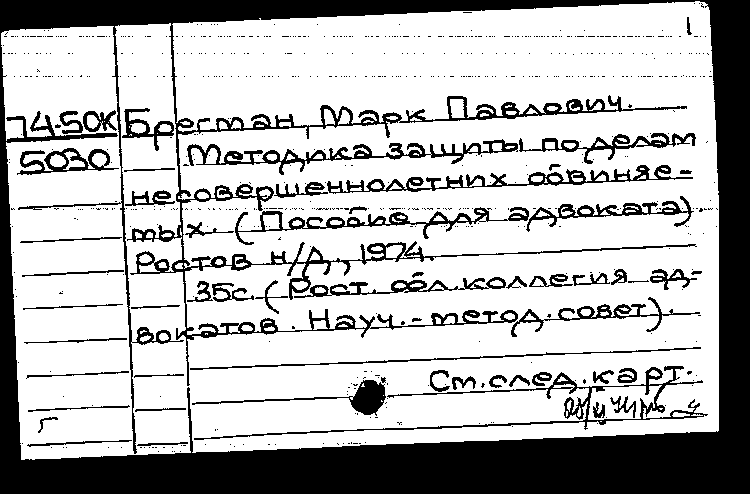 1
74-50К Брегман, Марк Павлович.
5030 Методика защиты по делам
несовершеннолетних обвиняе-
мых. (Пособие для адвоката).
Ростов н/Д., 1974.
35с. (Рост. обл. коллегия ад-
вокатов. Науч.-метод. совет).
См. след. карт.